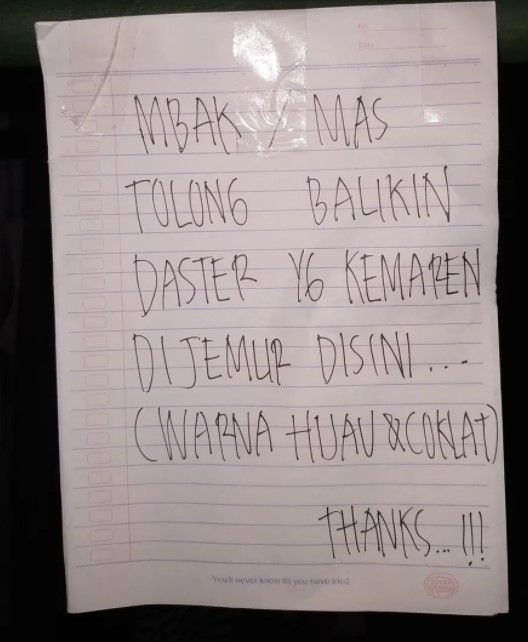 No.
Date
MBAK / MAS
TOLONG BALIKIN
DASTER YG KEMAREN
DIJEMUR DISINI...
(WARNA HIJAU & COKLAT)
THANKS...!!!
You'll never know till you have tried